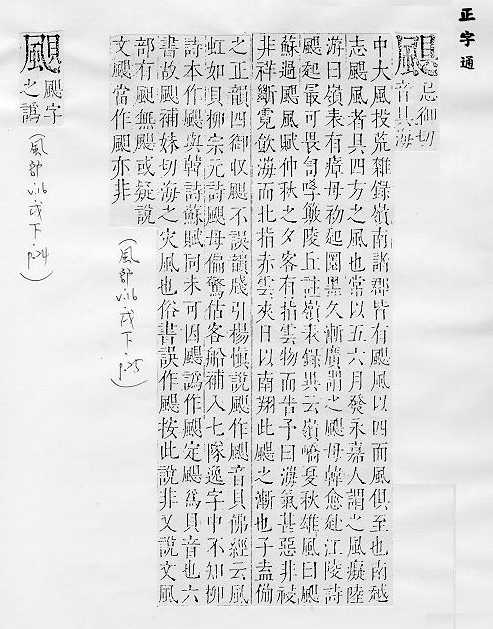 正字通
颶
忌御切
音具海
中大風投荒雜錄嶺南諸郡皆有颶風以四面風俱至也南越
志颶風者具四方之風也常以五六月發永嘉人謂之風癡陸
游曰嶺表有瘴母初起圓黑久漸廣謂之颶母韓愈赴江陵詩
颶起最可畏訇哮簸陵丘註嶺表錄異云嶺嶠夏秋雄風曰颶
蘇過颶風賦仲秋之夕客有指雲物而告予曰海氛甚惡非祲
非祥斷霓飲海而北指赤雲夾日以南翔此颶之漸也子盍備
之正韻四御收颶不誤韻牋引楊愼說颶作䫻音貝佛經云風
虹如貝柳宗元詩颶母偏驚估客船補入七隊逸字中不知柳
詩本作颶與韓詩蘇賦同未可因颶譌作䫻定颶爲貝音也六
書故䫻補妹切海之灾風也俗書誤作颶按此說非又說文風
部有䫻無颶或疑說
文䫻當作颶亦非
(風部 v.16 戌下 p.25)
䫻
颶字
之譌
(風部 v.16 戌下 p.24)